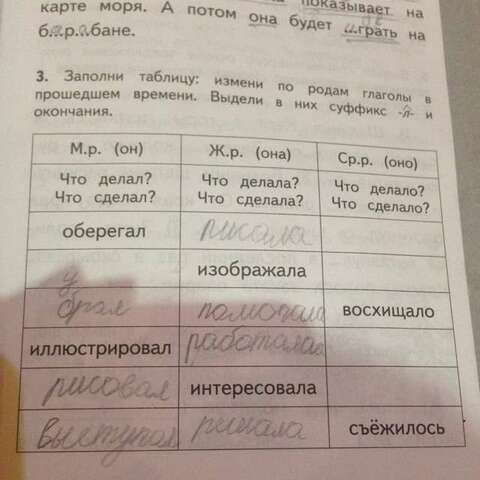 показывает на
карте моря. А потом она будет играть на
барабане.
3. Заполни таблицу: измени по родам глаголы в
прошедшем времени. Выдели в них суффикс -л- и
окончания.
М.р. (он) Ж.р. (она) Ср.р. (оно)
Что делал? Что делала? Что делало?
Что сделал? Что сделала? Что сделало?
оберегал писала
изображала
брал помогала восхищало
иллюстрировал работала
рисовал интересовала
выступал решала съёжилось